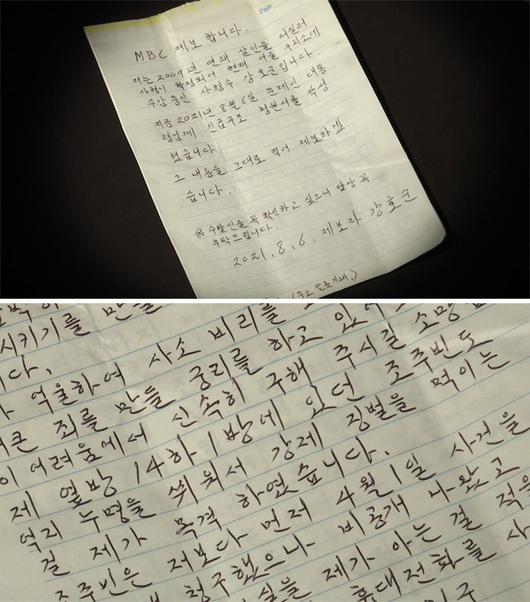 MBC 제보 합니다.
저는 2009년 연쇄 살인을 저질러
사형이 확정되어 현재 서울 구치소에
수감 중인 사형수 강호순입니다.
지금 2021년 8월 6일 문재인 대통
령님께 긴급구조 청원서를 작성
했습니다.
그 내용을 그대로 적어 제보하겠
습니다.
※ 수발인을 꼭 확인하고 싶으니 답장 꼭
부탁드립니다.
2021. 8. 6. 제보자 강호순
시키기를 만들
니다.
억울하여 사소 비리를
큰 죄를 만들 궁리를 하고 있어
이 어려움에서 신속히 구해 주시길 소망
제 옆방 14하 1방에 있던 조주빈도
억지 누명을 씌워서 강제 징벌을 먹이는
걸 제가 목격 하였습니다.
조주빈은 저보다 먼저 4월 1일 사건을
청구했으나 비공개 나왔고
실을 제가 아는 걸 적을
휴대전화를 사